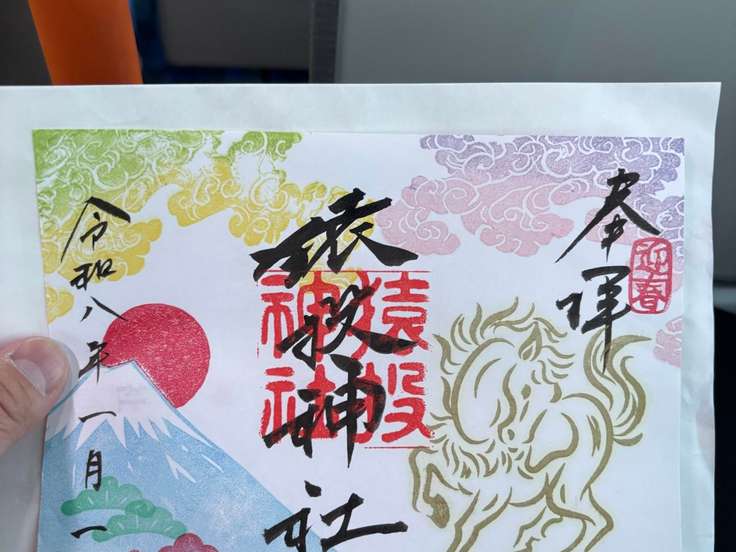 奉拝
迎春
猿投神社
猿投
神社
令和八年一月一